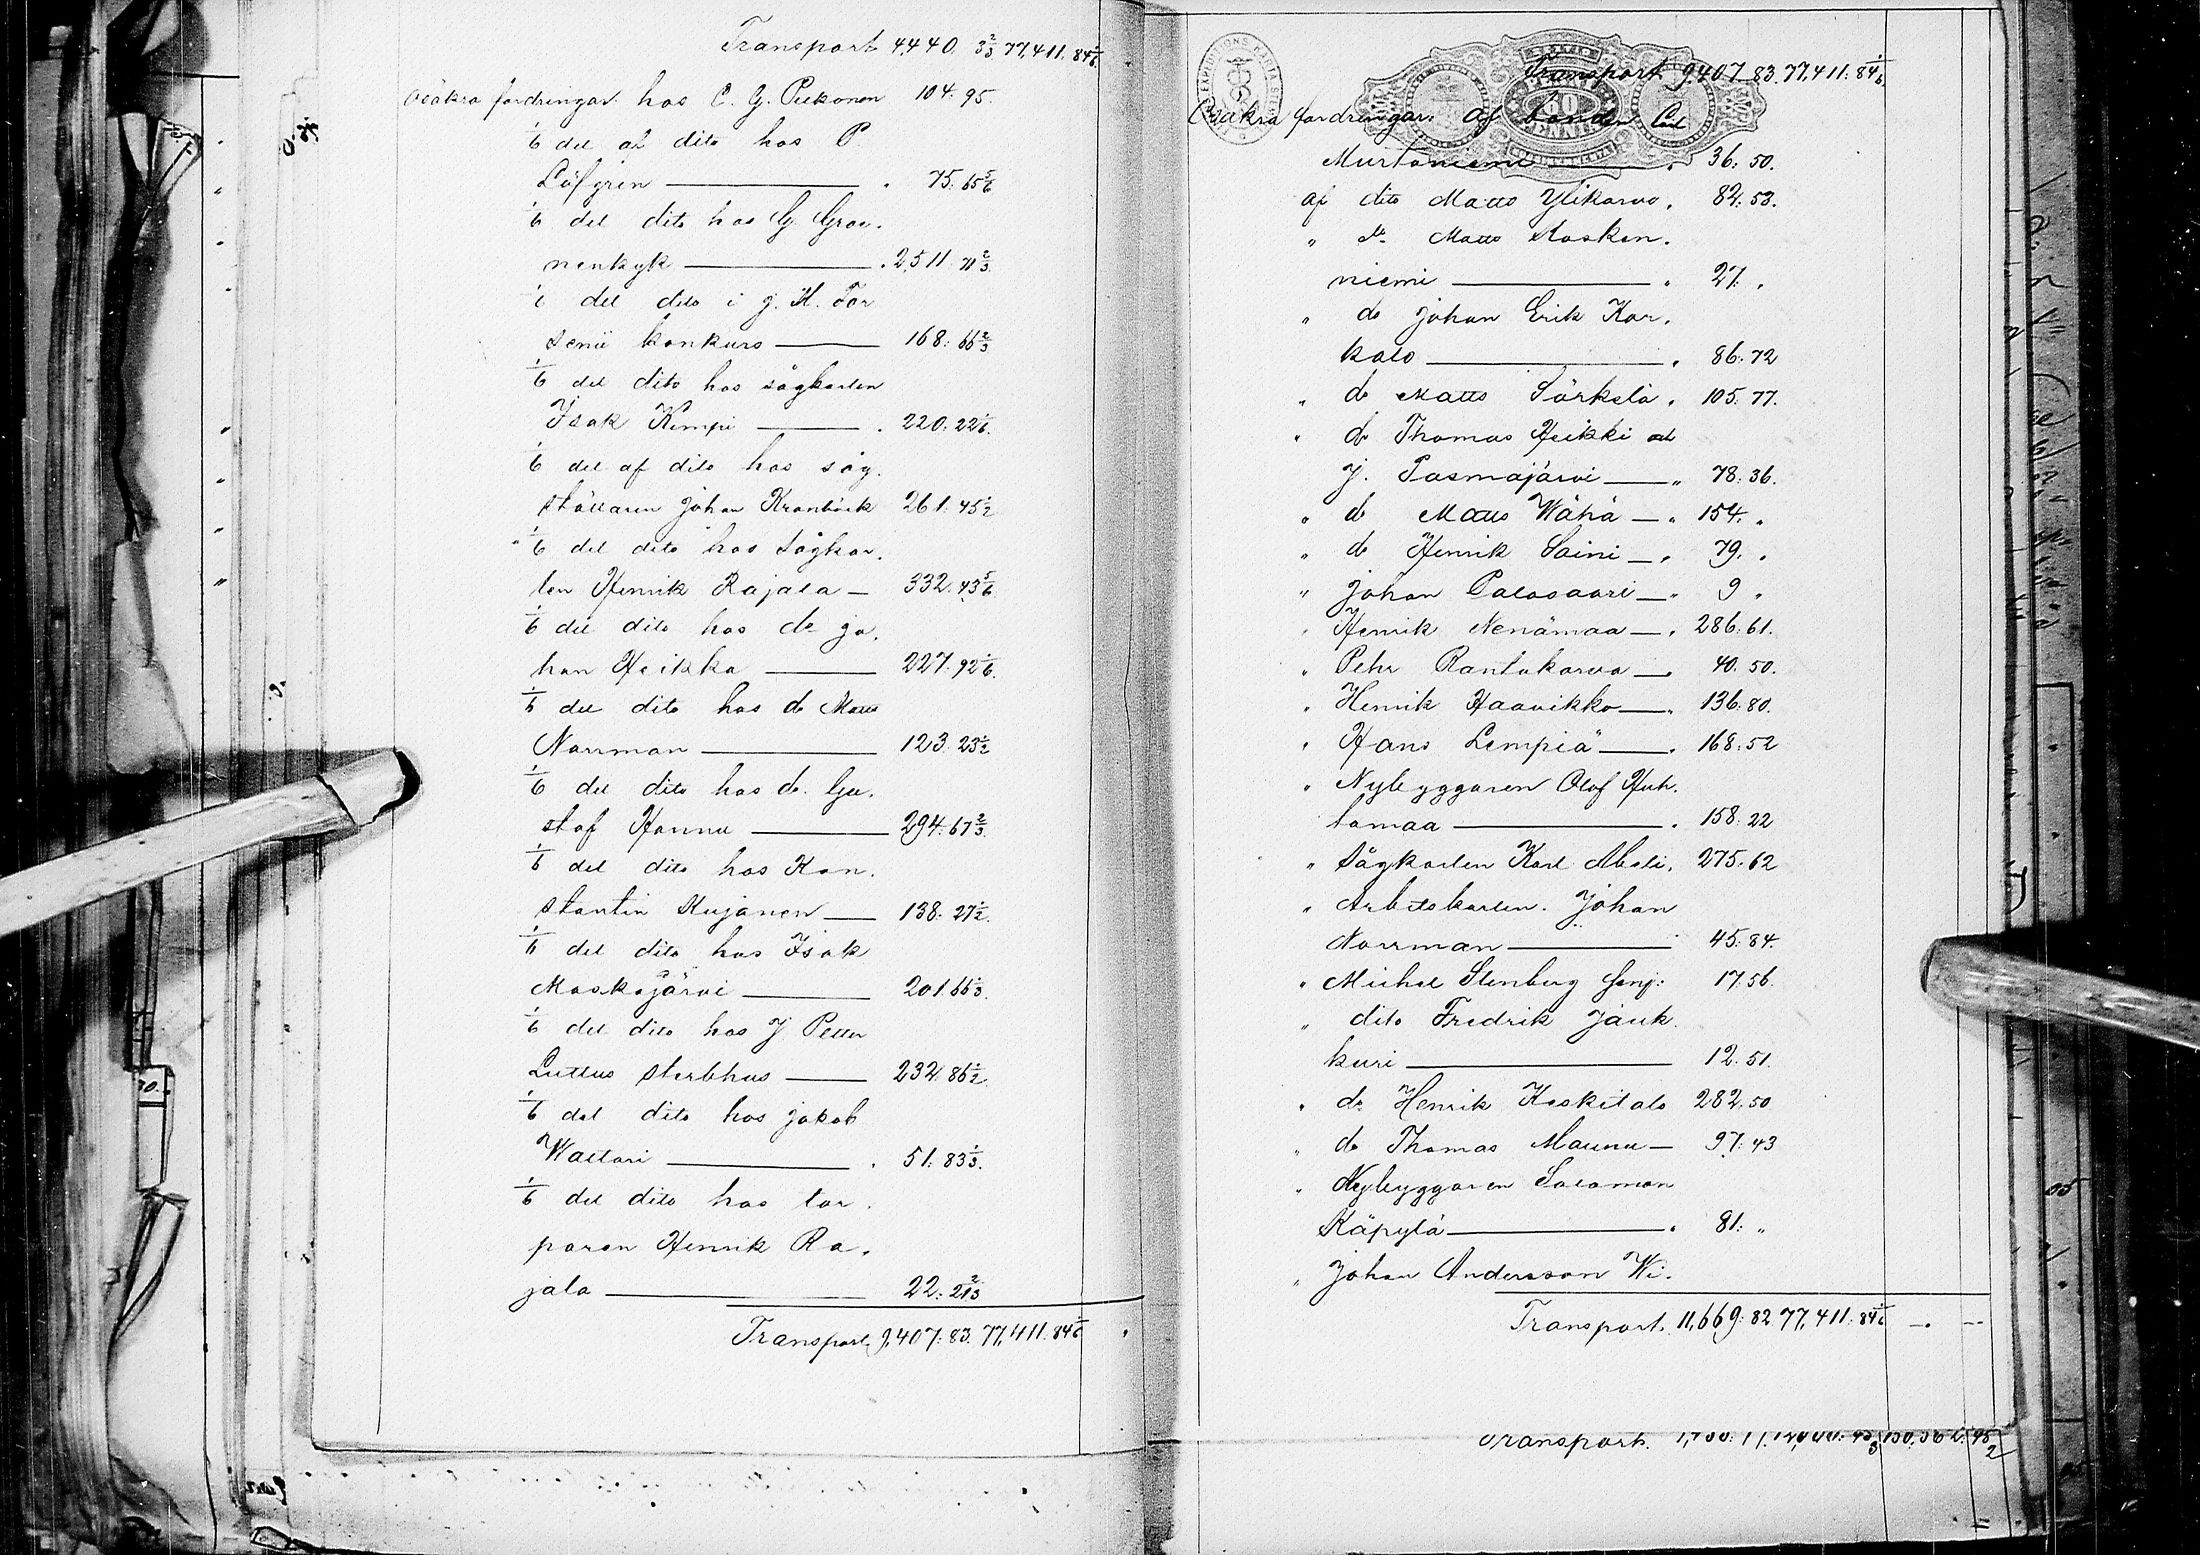 Transport 4,440. 3 2/3 77,411: 84 1/6.
Osäkra fordringar: hos C. G. Piekonen 104: 95.
1/6 del af dito hos P.
Löfgren — " 75: 65 5/6
1/6 del dito hos G. Grön.
nenkyk — " 2,511. 71 2/3
1/6 del dito i J. H. For
senii konkurs — 168: 66 2/3
1/6 del dito hos sågkarlen
Isak Kempi — " 220: 22 1/6.
1/6 del af dito hos såg.
ställaren Johan Kranbäck 261: 45 1/2
1/6 del dito hos sågkar.
len Henrik Rajala — 332. 43 5/6
1/6 del dito hos do Jo.
han Heikka — 227. 92 1/6.
1/6 del dito hos do Matts
Norrman — 123. 23 1/2
1/6 del dito hos do. Gu.
staf Hannu — 294: 67 2/3
1/6 del dito hos Kon.
stantin Kujanen — 138: 27 1/2.
1/6 del dito hos Isak
Moskojärvi — 201. 66 1/3.
1/6 del dito hos J Petter
Luttus sterbhus — 232. 86 1/2.
1/6 del dito hos Jakob
Waltari — " 51: 83 1/3.
1/6 del dito hos tor.
paren Henrik Ra.
jala — 22: 21 2/3
Transport 9,407: 83. 77,411: 84 1/6
Transport 9,407. 83. 77,411: 84 1/6.
Osäkra fordringar: af bonden Carl
Murtoniemi — " 36: 50.
af dito Matts Ylikarvo " 82: 53.
" do Matts Kosken.
niemi — " 27: "
" do Johan Erik Kor.
kalo — " 86: 72
" do Matts Särkelä " 105: 77.
" do Thomas Heikki och
J. Pasmajärvi — " 78: 36.
" do Matts Wähä — " 154. "
" do Henrik Saini — " 79. "
" Johan Palosaari — " 9 "
" Henrik Nenämaa — " 286: 61.
" Pehr Rantakarvo — " 40. 50.
" Henrik Haavikko — " 136: 80.
" Hans Lempiä — " 168: 52
" Nybyggaren Olof Huh.
tamaa — " 158: 22
" Sågkarlen Karl Abeli. 275. 62
" Arbetskarlen. Johan
Norrman — 45: 84.
" Michel Stenberg Senj: 17: 56.
" dito Fredrik Jauk.
kuri — 12. 51.
" do Henrik Keskitalo 282. 50
" do Thomas Maunu — 97: 43
" Nybyggaren Salomon
Käpylä — " 81: "
" Johan Andersson Wi.
Transport. 11,669: 82 77,411: 84 1/6
Transport.